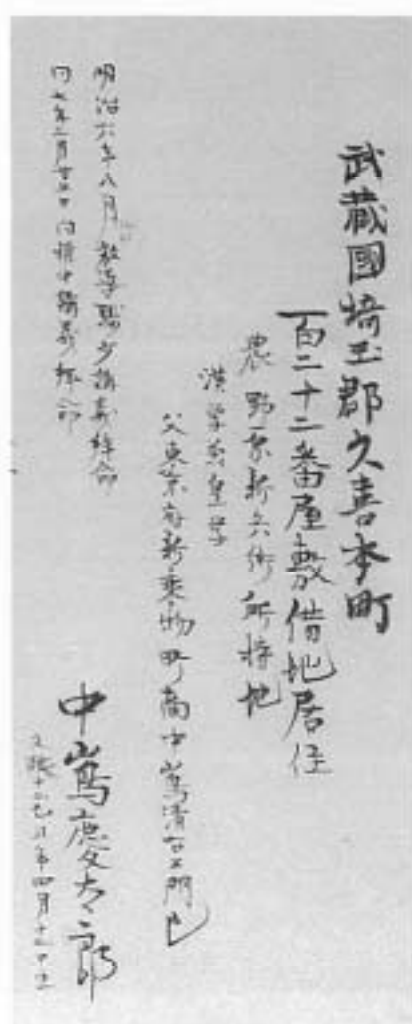 武蔵國埼玉郡久喜本町
百二十二番屋敷借地居住
農 野原新兵衛所持地
漢学兼皇学
父東京府新乗物町商中嶌清右エ門
中嶌慶太郎
天保十二 年四月十
明治六年八月 教導職少講義拝命
同七年二月廿 同権中講義拝命